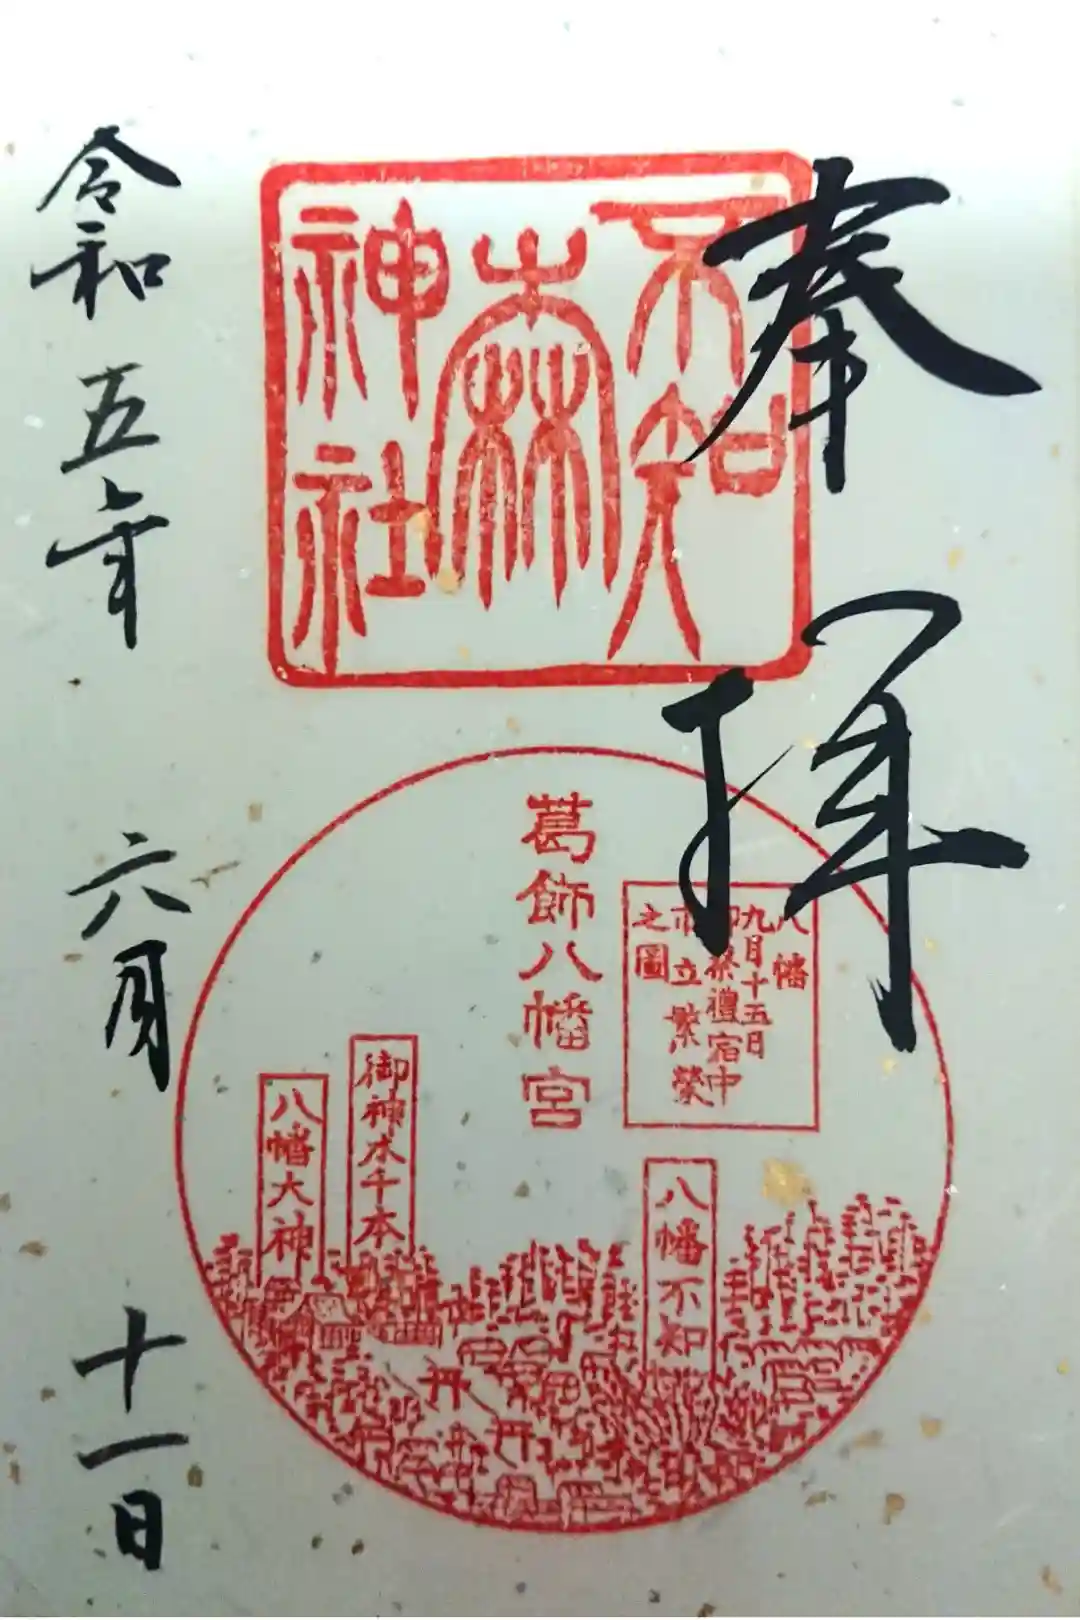 奉拝
不知
森
神社
葛飾八幡宮
八幡
九月十五日
御祭禮宿中
市立繁榮
之圖
八幡不知
御神水千本
八幡大神
令和五年六月十一日